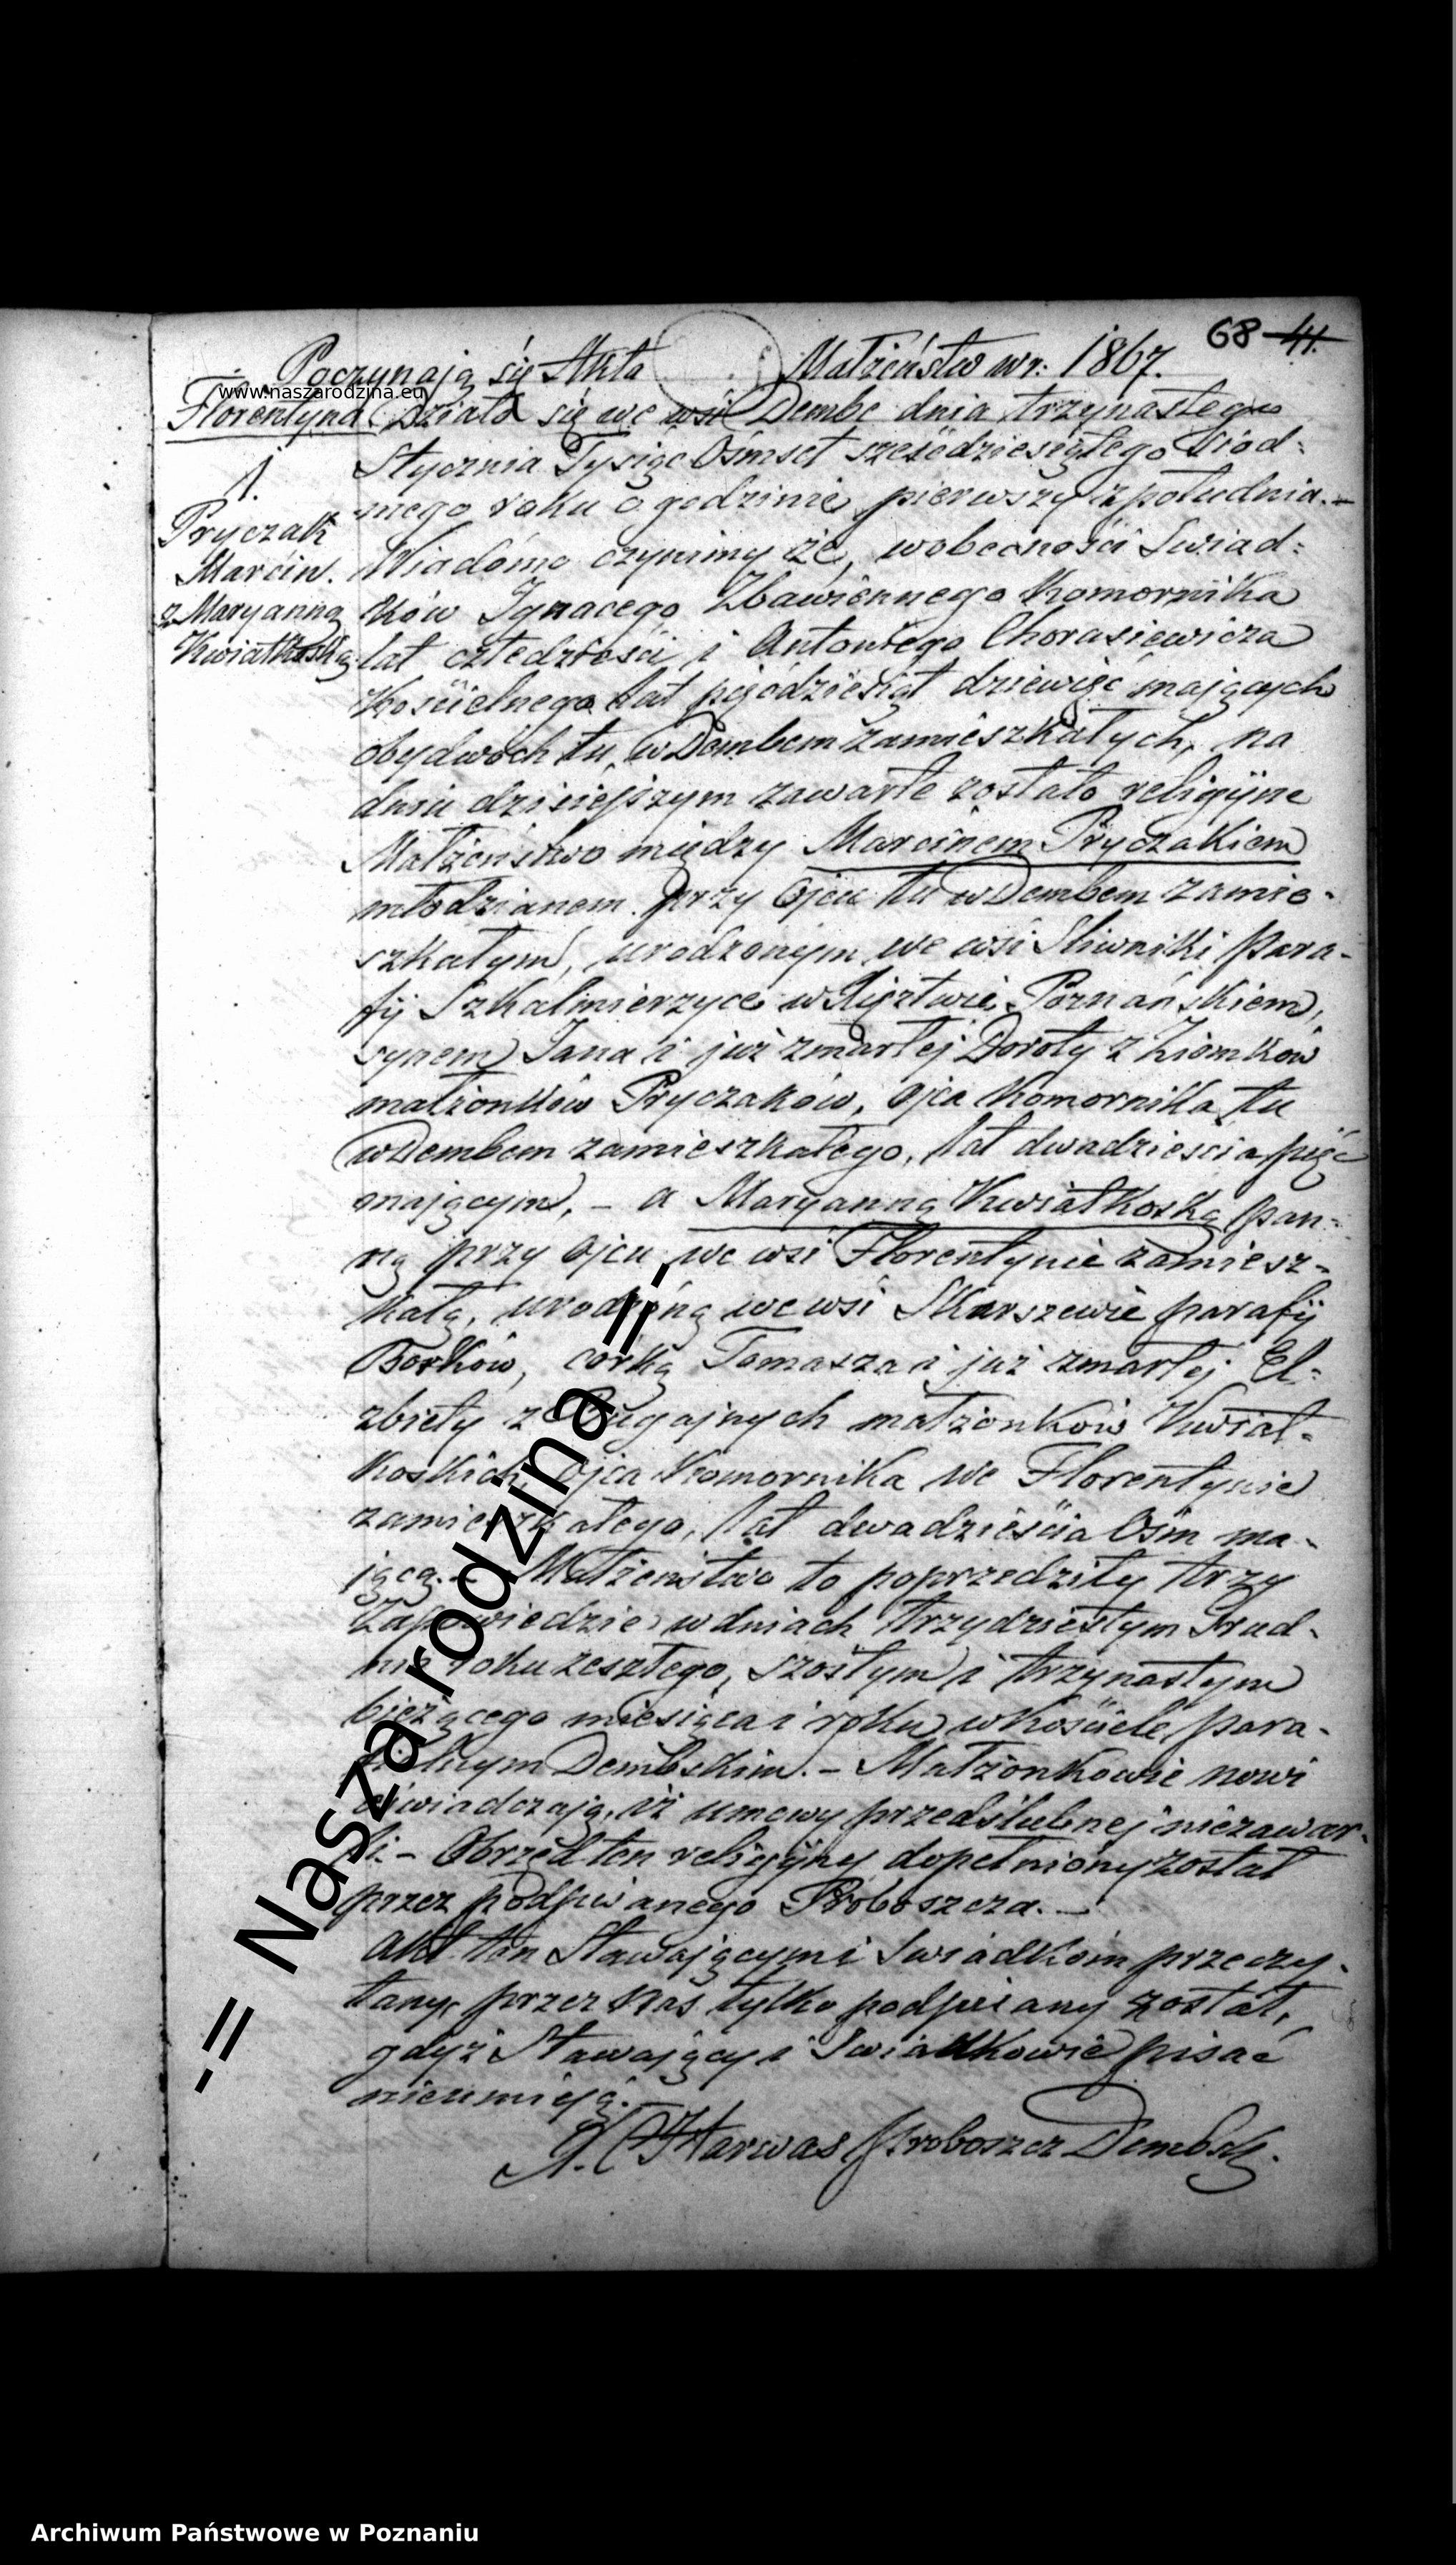 68 41.
Poczynają się Akta Małżeństw w r: 1867.
www.naszarodzina.eu
Florentyna
1.
Pryczak
Marcin.
z Maryanną
Kwiatkoską
Działo się we wsi Dembe dnia trzynastego
Stycznia Tysiąc Ośmset sześćdziesiątego siód-
mego roku o godzinie pierwszy z południa. –
Wiadomo czynimy że, wobecności Świad-
ków Ignacego Zbawiennego Komornika
lat czterdzieści i Antoniego Chorasiewicza
Kościelnego lat pięćdziesiąt dziewięć mających
obydwóch tu w Dembem zamieszkałych, na
dniu dzisiejszym zawarte zostało religijne
Małżeństwo między Marcinem Pryczakiem
młodzianem przy Ojcu tu w Dembem zamie-
szkałym, urodzonym we wsi Śliwniki para-
fij Szkalmierzyce w Xięztwie Poznańskiem,
synem Jana i już zmarłej Doroty z Ziomków
małżonków Pryczaków, Ojca Komornika tu
w Dembem zamieszkałego, lat dwadzieścia pięć
mającym, – a Maryanną Kwiatkoską pan-
ną przy Ojcu we wsi Florentynie zamiesz-
kałą, urodzoną we wsi Skarszewie parafij
Borków, córką Tomasza i już zmarłej El-
zbiety z małżonków Kwiat-
koskich, Ojca Komornika we Florentynie
zamieszkałego, lat dwadzieścia Ośm ma-
jącą. – Małżeństwo to poprzedziły trzy
Zapowiedzie w dniach trzydziestym Grud-
nia roku zeszłego, szóstym i trzynastym
bieżącego miesiąca i roku w kościele para-
fialnym Dembskim. – Małżonkowie nowi
oświadczają, iż umowy przedślubnej niezawar-
li. – Obrzęd ten religijny dopełniony został
przez podpisanego Proboszcza. –
Akt ten Stawającymi Świadkom przeczy-
tany, przez Nas tylko podpisany został,
gdyż Stawający i Świadkowie pisać
nieumieją.
X. Harwas Proboszcz Dembski.
-= Nasza rodzina =-
Archiwum Państwowe w Poznaniu